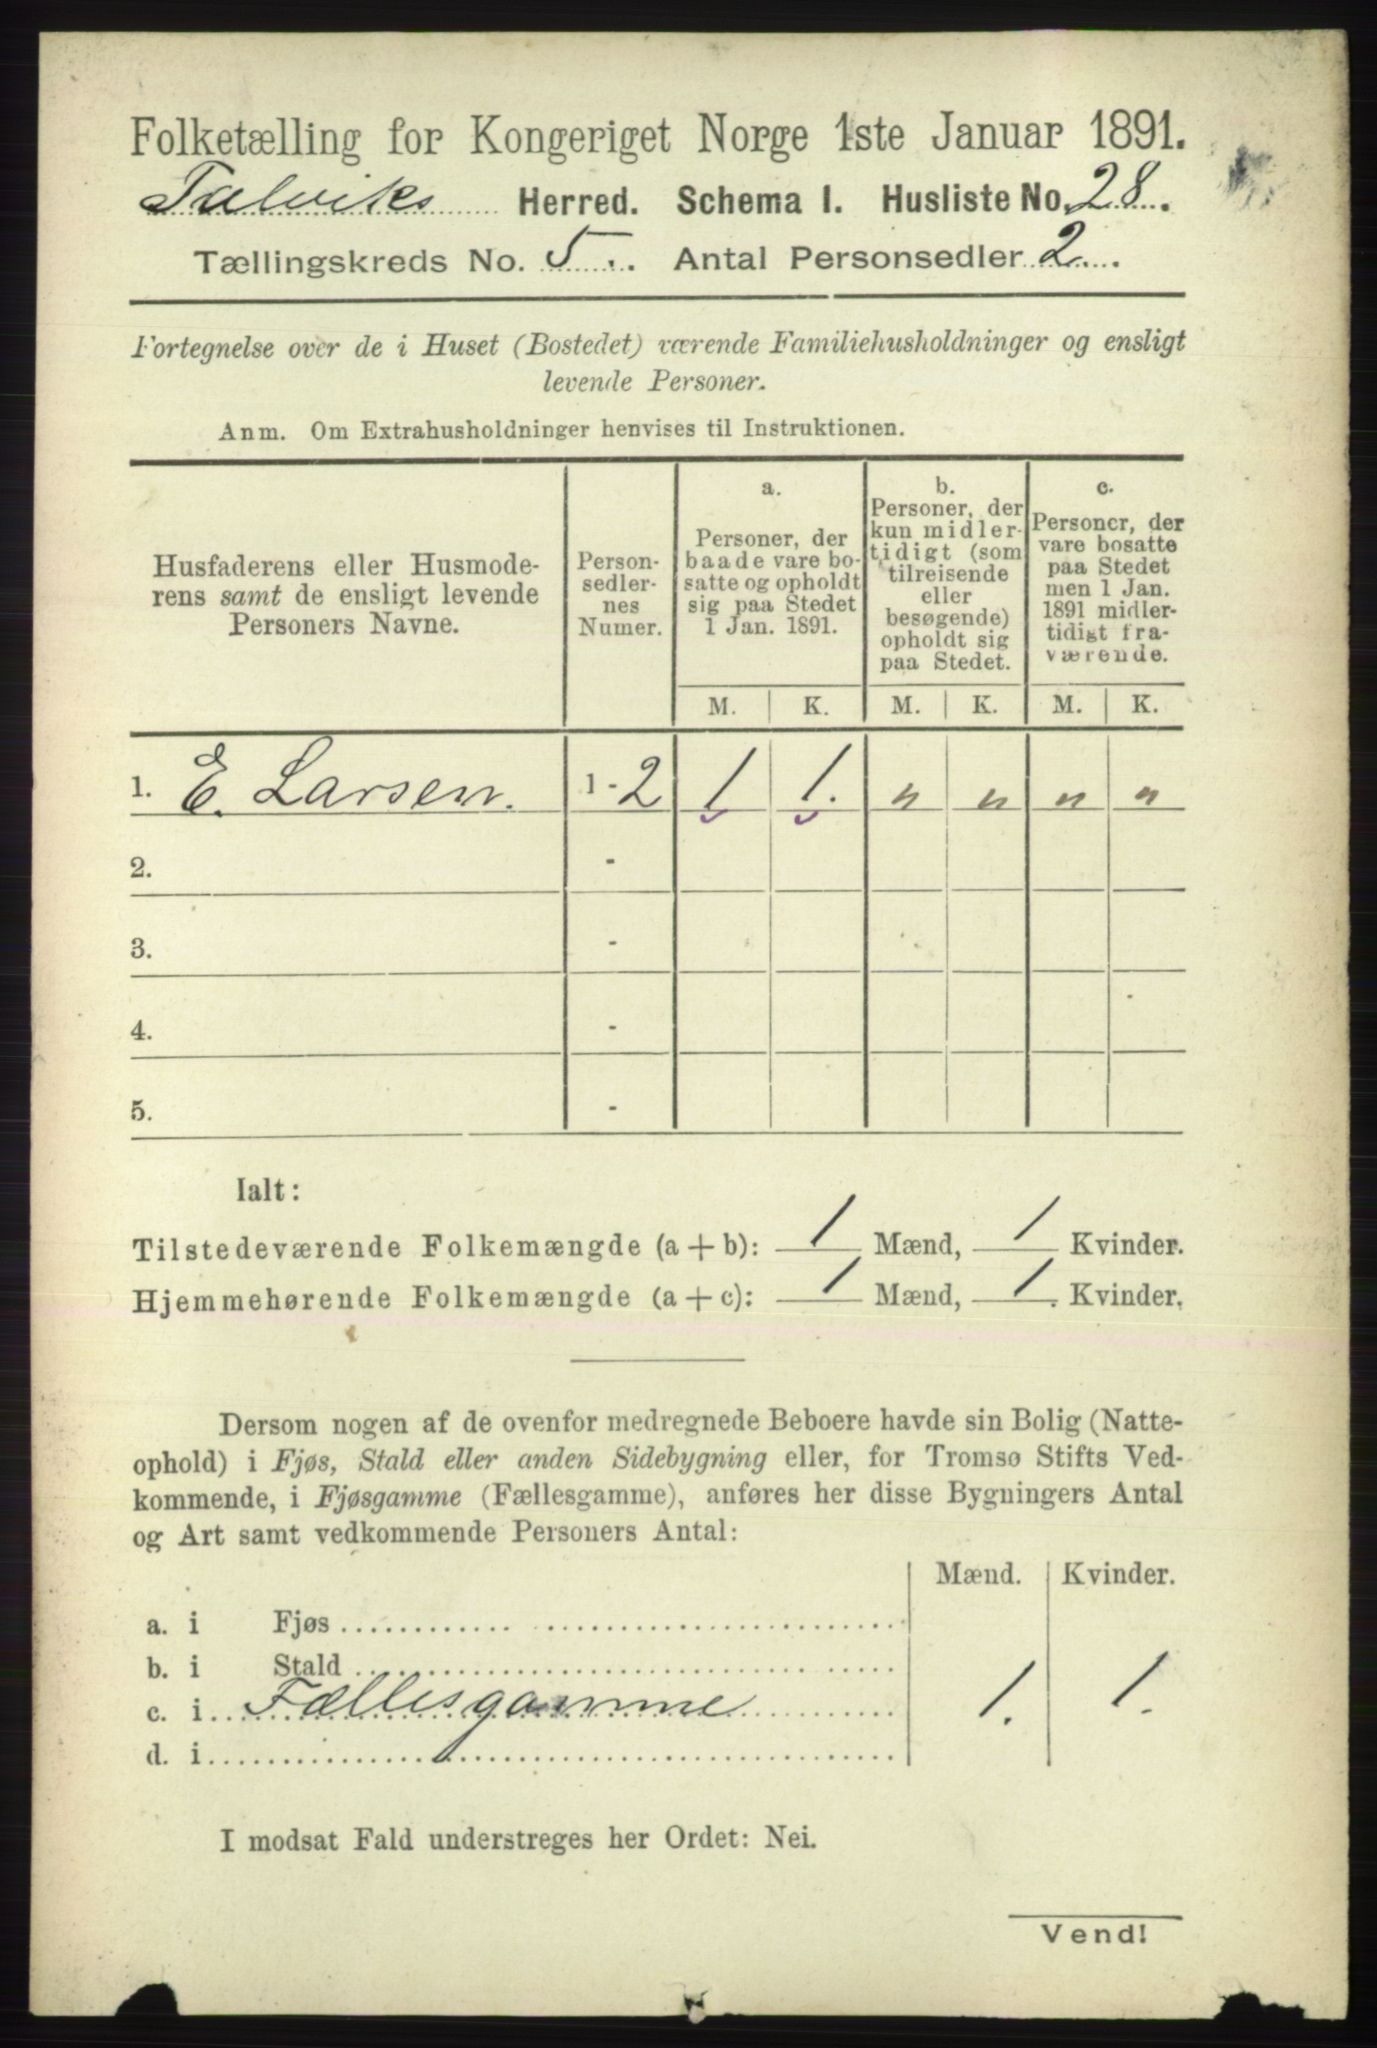 Folketælling for Kongeriget Norge 1ste Januar 1891.
Talviks Herred. Schema I. Husliste No. 28.
Tællingskreds No. 5. Antal Personsedler 2.
Fortegnelse over de i Huset (Bostedet) værende Familiehusholdninger og ensligt
levende Personer.
Anm. Om Extrahusholdninger henvises til Instruktionen.
Husfaderens eller Husmode-
rens samt de ensligt levende
Personers Navne.
Person-
sedler-
nes
Numer.
a.
Personer, der
baade vare bo-
satte og opholdt
sig paa Stedet
1 Jan. 1891.
b.
Personer, der
kun midler-
tidigt (som
tilreisende
eller
besøgende)
opholdt sig
paa Stedet.
c.
Personer, der
vare bosatte
paa Stedet
men 1 Jan.
1891 midler-
tidigt fra-
værende.
M. K. M. K. M. K.
1. E. Larsen. 1-2 1 1. " " " "
2. -
3. -
4. -
5. -
Ialt:
Tilstedeværende Folkemængde (a+b): 1 Mænd, 1 Kvinder.
Hjemmehørende Folkemængde (a+c): 1 Mænd, 1. Kvinder.
Dersom nogen af de ovenfor medregnede Beboere havde sin Bolig (Natte-
ophold) i Fjøs, Stald eller anden Sidebygning eller, for Tromsø Stifts Ved-
kommende, i Fjøsgamme (Fællesgamme), anføres her disse Bygningers Antal
og Art samt vedkommende Personers Antal:
Mænd. Kvinder.
a. i Fjøs
b. i Stald
c. i Fællesgamme 1. 1.
d. i
I modsat Fald understreges her Ordet: Nei.
Vend!